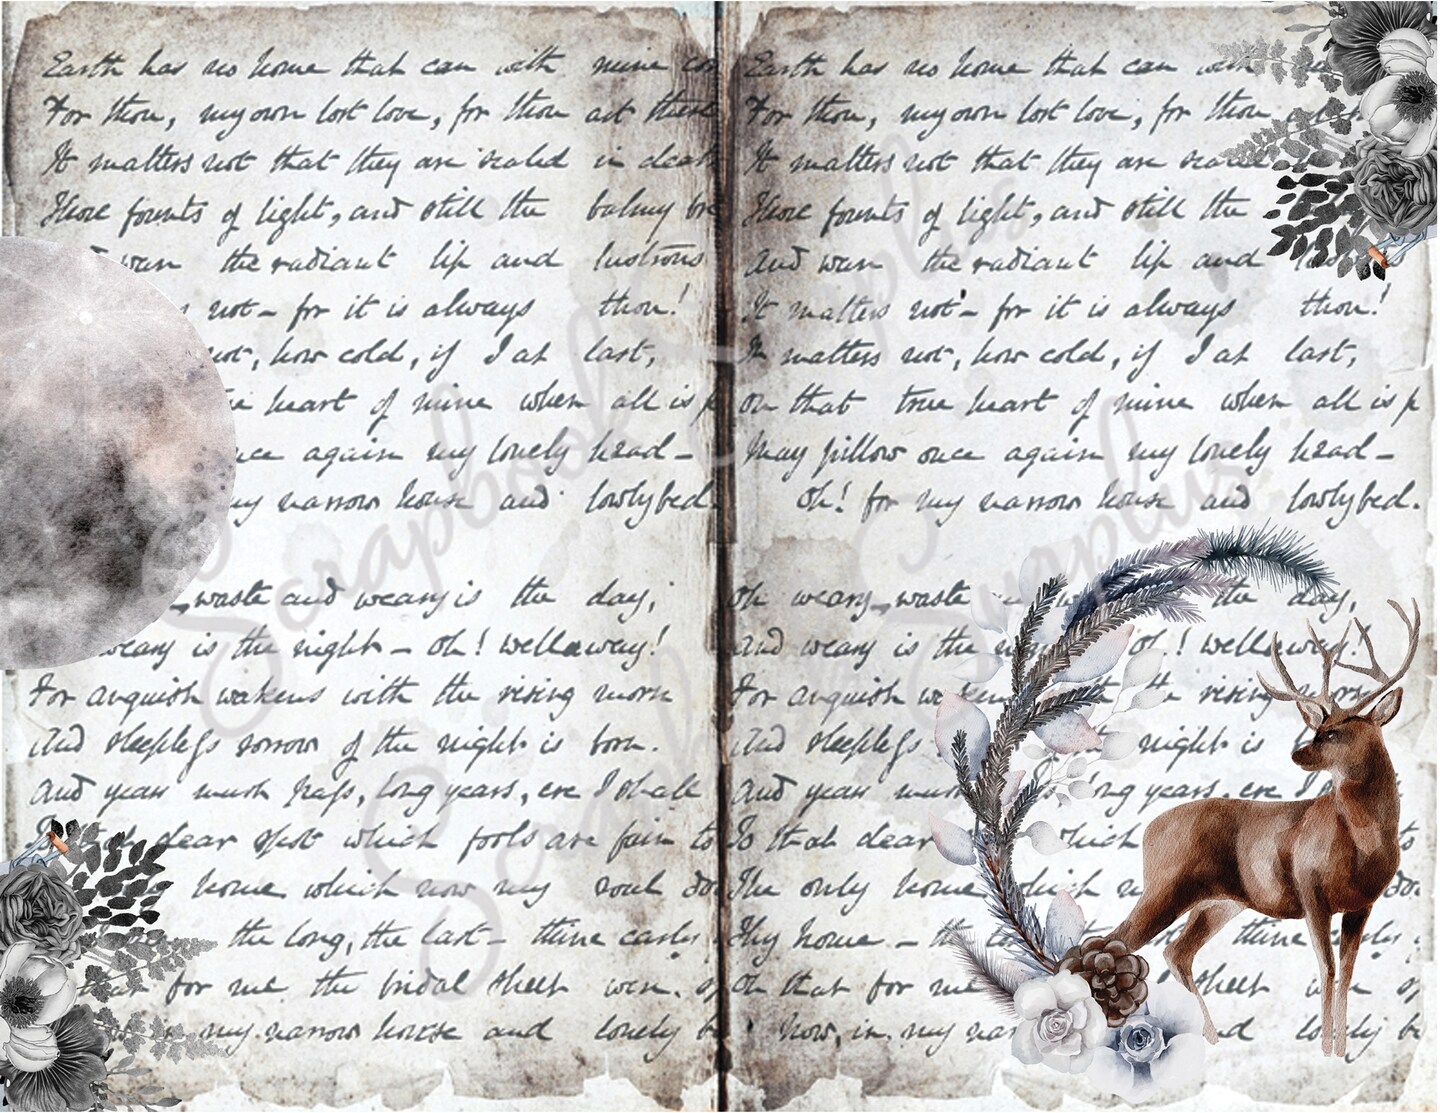 Earth has no home that can with mine co
For thou, my own lost love, for thou art there
It matters not that they are sealed in deat
Those founts of light, and still the balmy bre
wan the radiant lip and lustrous
not - for it is always thou!
not, how cold, if I at last,
heart of mine when all is p
once again my lonely head -
my narrow house and lowly bed.
waste and weary is the day,
weary is the night - oh! wellaway!
For anguish wakens with the rising morn
And sleepless sorrow of the night is born.
And years must pass, long years, ere I shall
dear spot which fools are fain to
home which now my soul do
the long, the last - thine early
that for me the bridal sheet were sp
in my narrow house and lonely b
Earth has no home that can with
For thou, my own lost love, for thou
It matters not that they are sealed
Those founts of light, and still the
And wan the radiant lip and
It matters not - for it is always thou!
It matters not, how cold, if I at last,
On that true heart of mine when all is p
May pillow once again my lonely head -
Oh! for my narrow house and lowly bed.
Oh weary, waste the day,
And weary is the night oh! wellaway!
For anguish waken the rising morn
And sleepless night is
And years long years, ere
To that dear which
The only home which
Thy home - thine early
Oh that for me sheet were sp
Now, in my narrow and lonely b
Scrapbook Surplus
Scrapbook Surplus